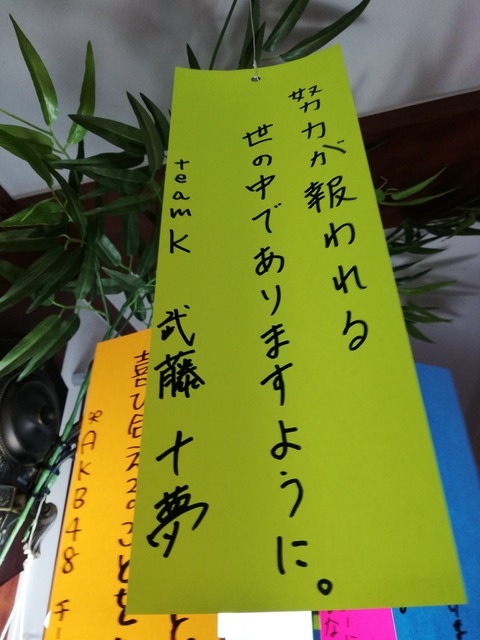 努力が報われる
世の中でありますように。
teamK 武藤 十夢
喜び合えることを
AKB48 チー